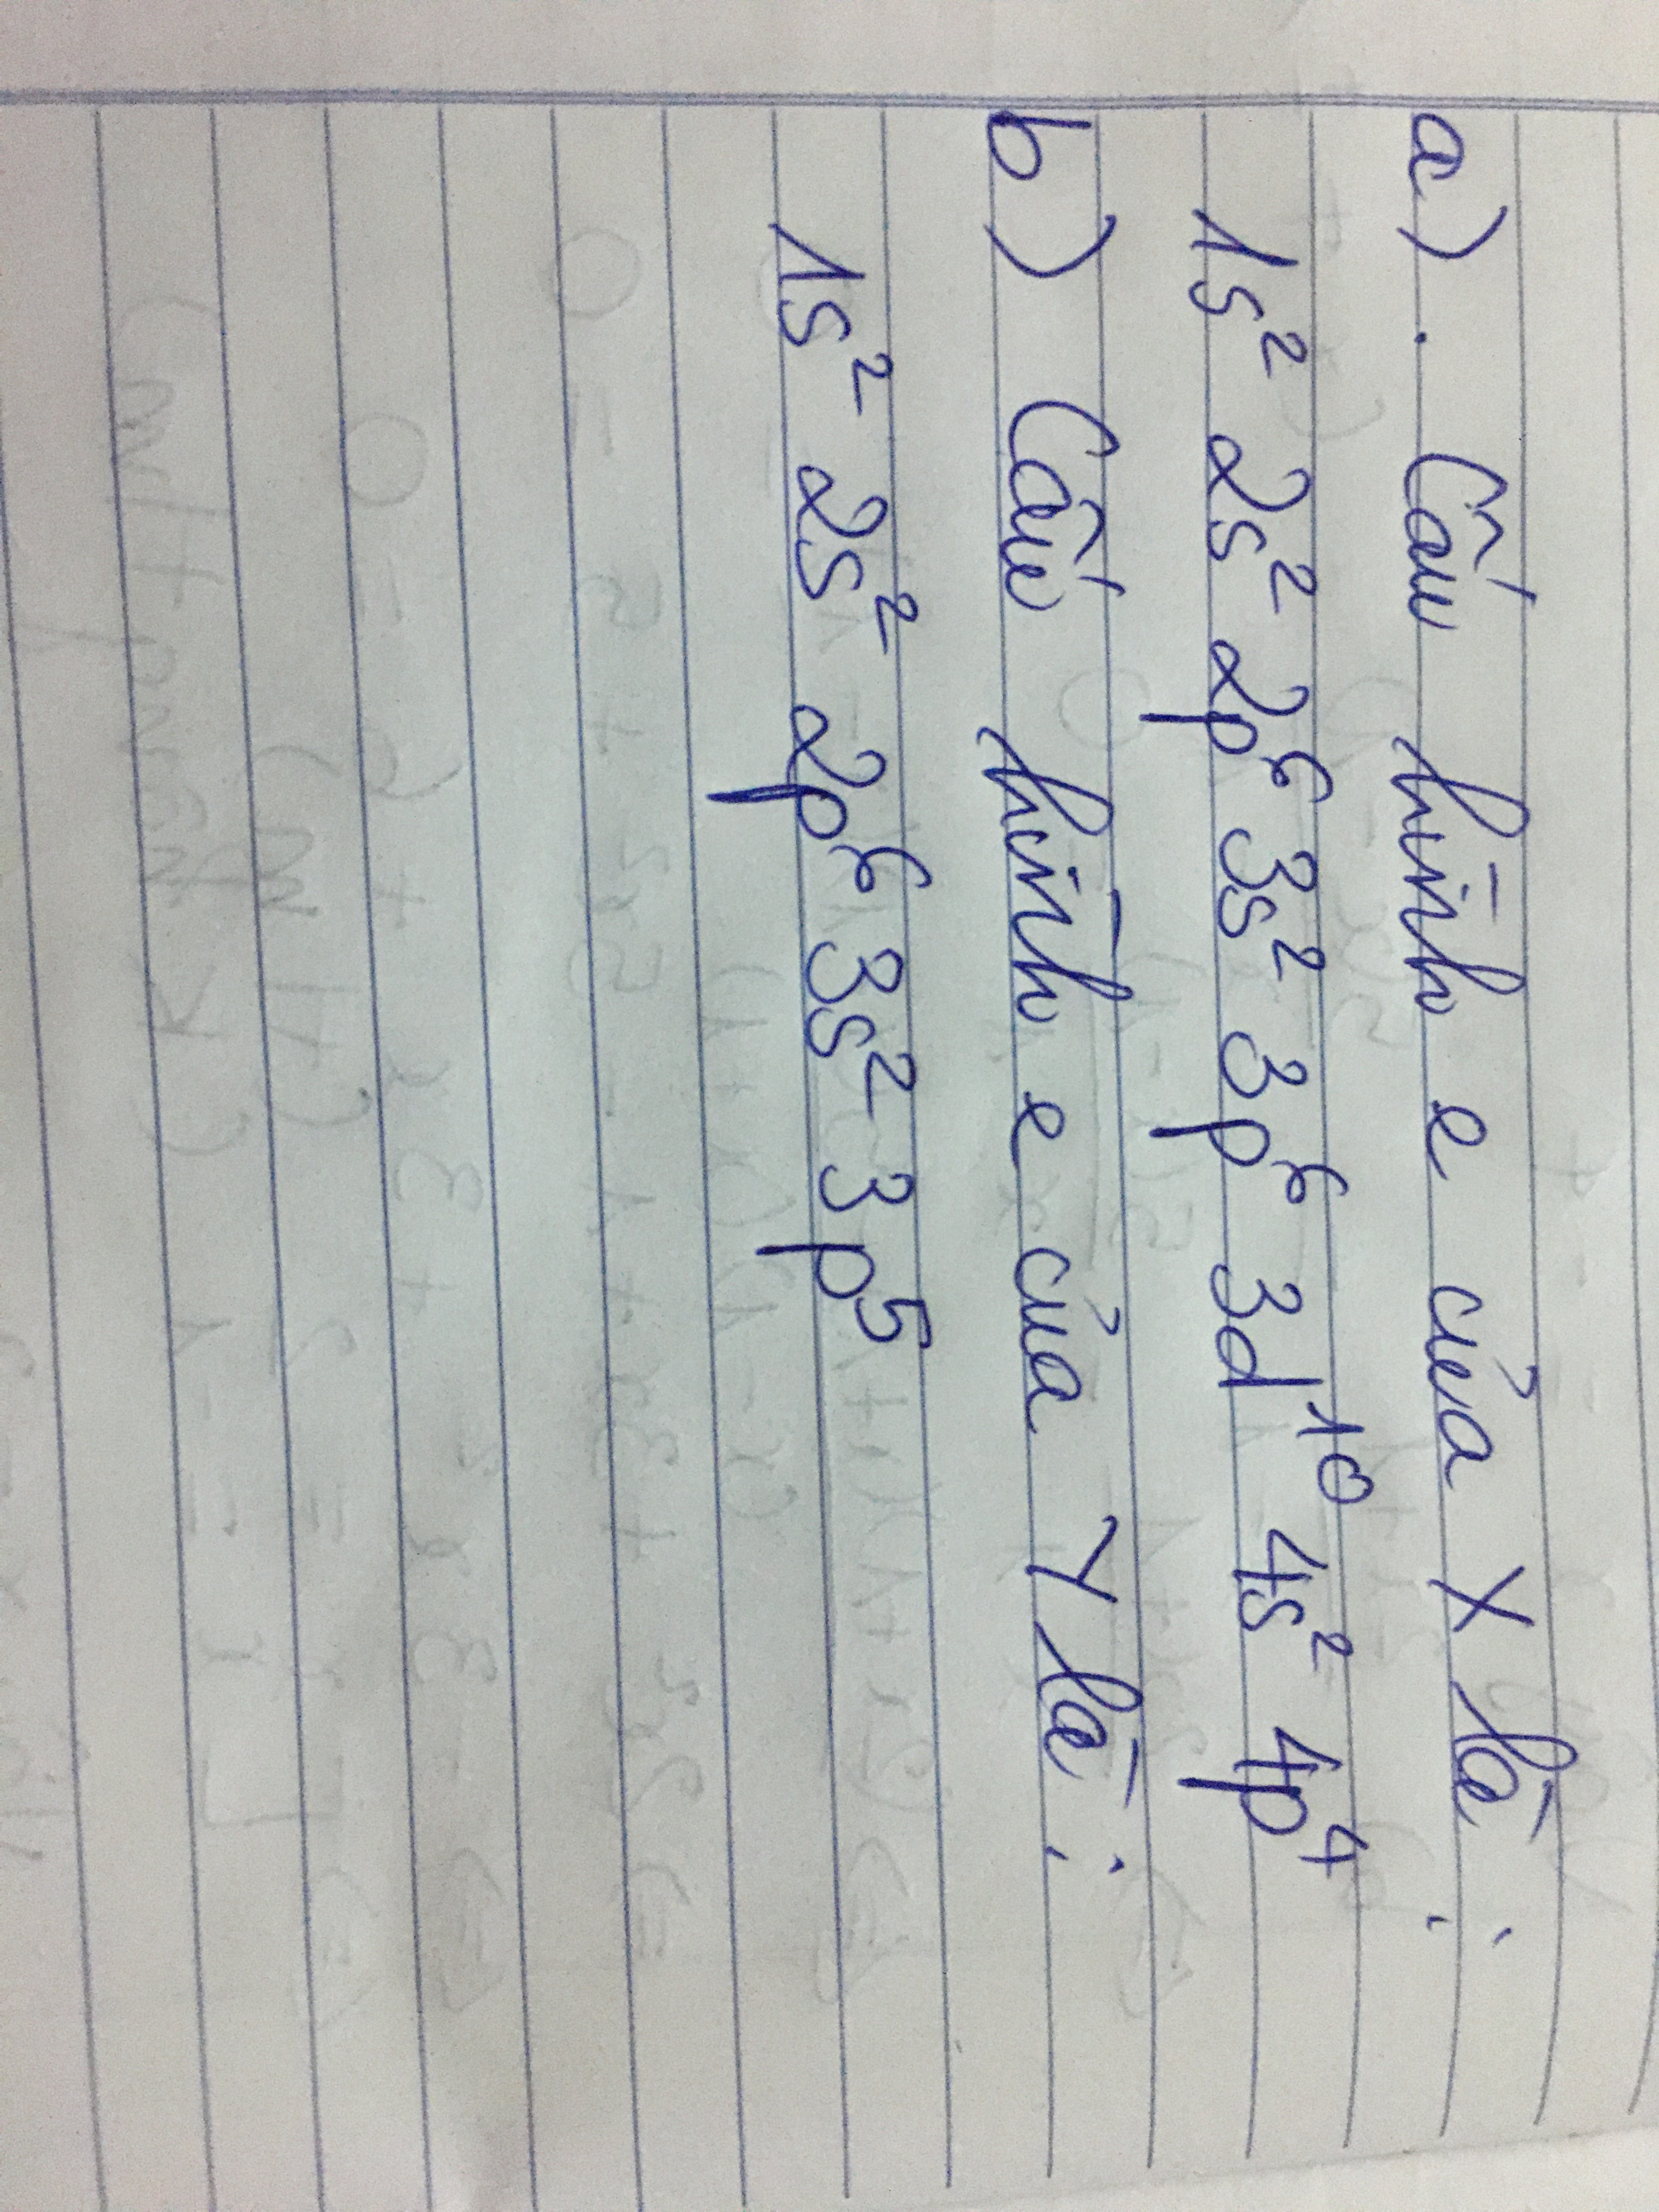 a). Cấu hình e của X là:
1s² 2s² 2p⁶ 3s² 3p⁶ 3d¹⁰ 4s² 4p⁴
b) Cấu hình e của Y là:
1s² 2s² 2p⁶ 3s² 3p⁵